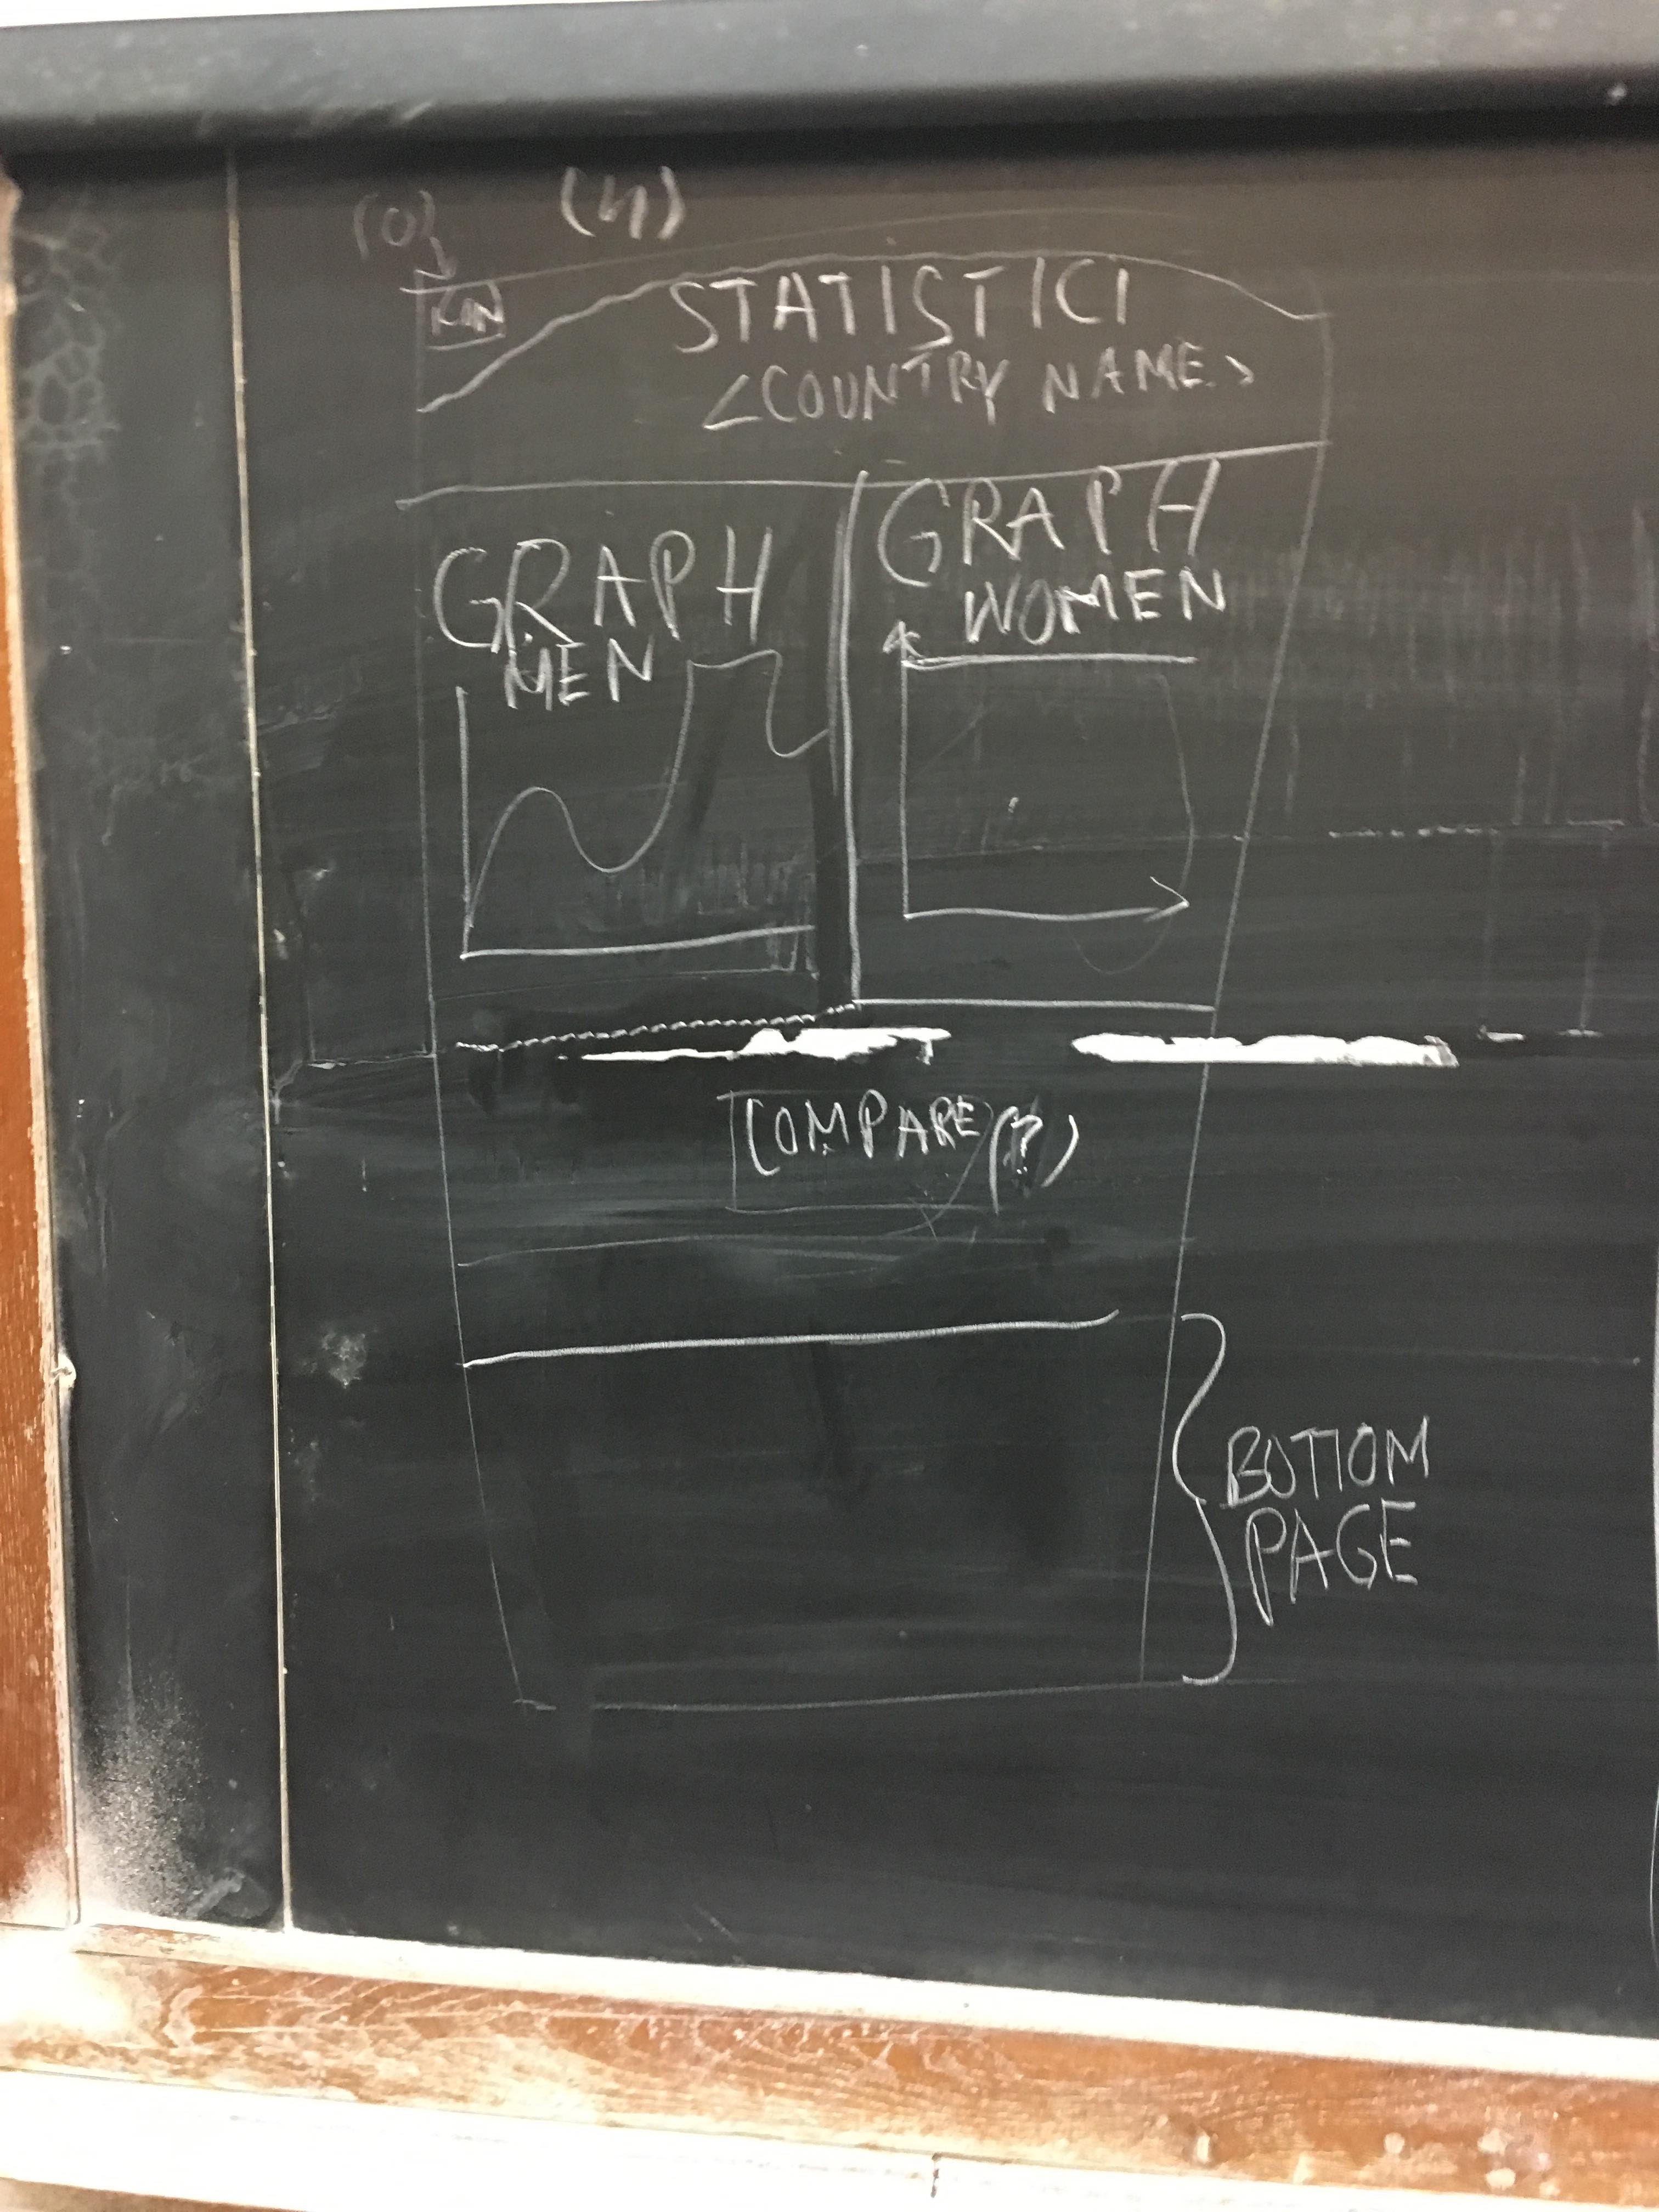 (0)
(4)
STATISTICI
<COUNTRY NAME>
GRAPH
MEN
GRAPH
WOMEN
COMPARE (?)
BOTTOM
PAGE